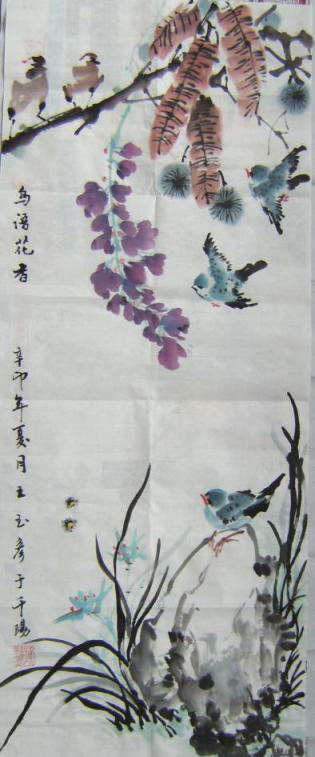 鸟语花香
辛卯年夏月王玉彦于千陽